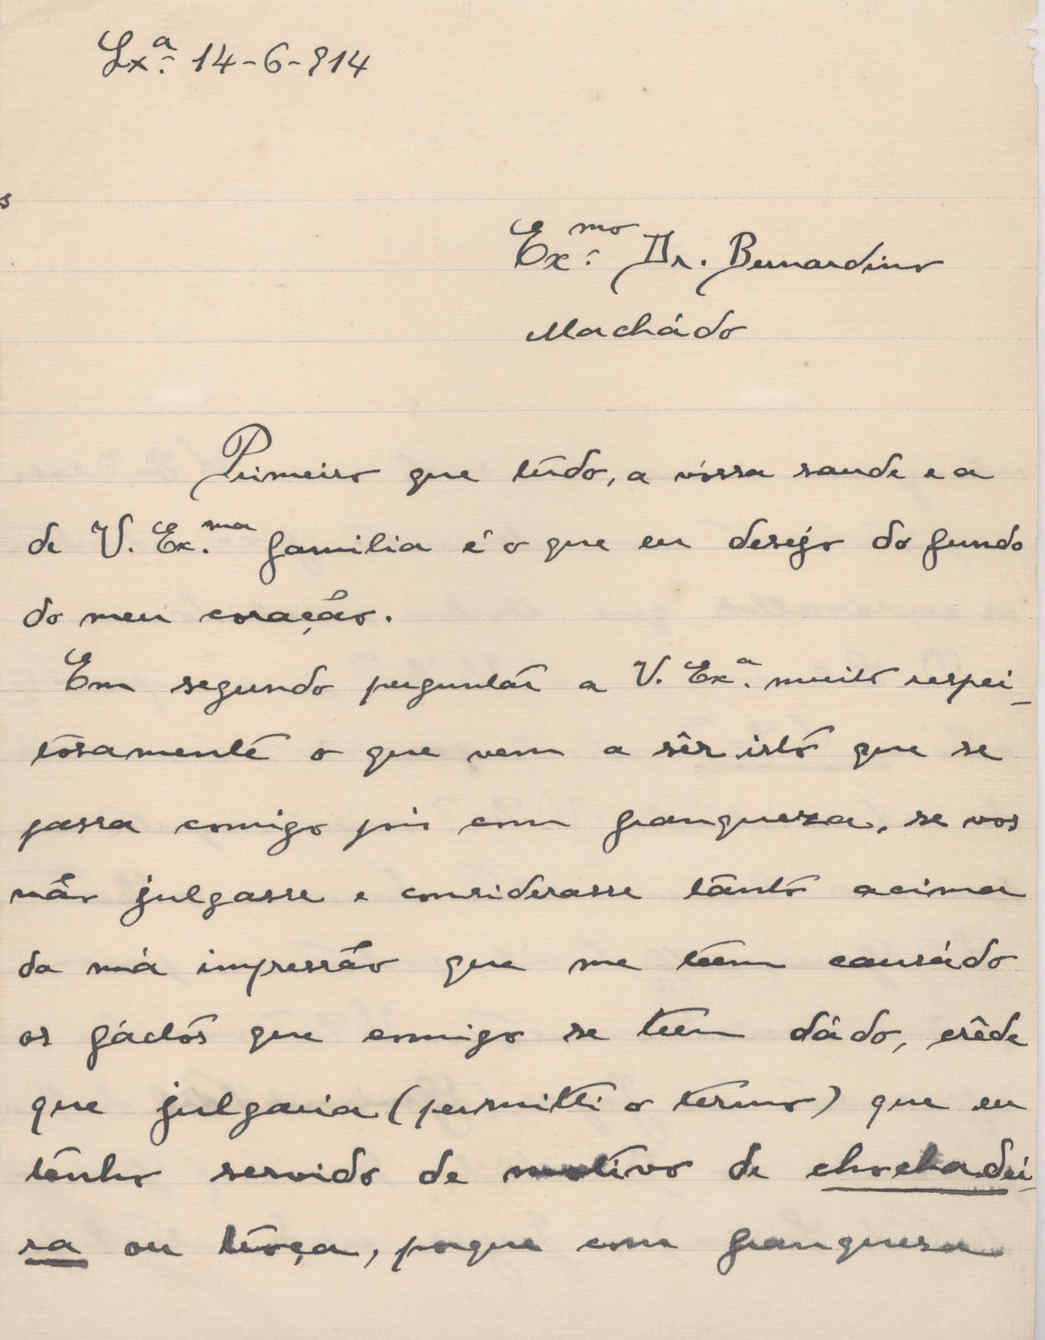 Lxª. 14-6-914
s
Ex.mo Dr. Bernardino
Machádo
Primeiro que túdo, a vóssa saude e a
de V. Ex.ma familia é o que eu desejo do fundo
do meu coração.
Em segundo perguntár a V. Exª. muitó respei-
tósamenté o que vem a sêr istó que se
passa comigo pois com franqueza, se vos
não julgasse e considerasse tântó acima
da má impressão que me teem causádo
os fáctós que comigo se teem dádo, crêde
que julgaria (permitti o termo) que eu
tênho servido de motívo de chochadei-
ra ou tróça, porque com franquesa